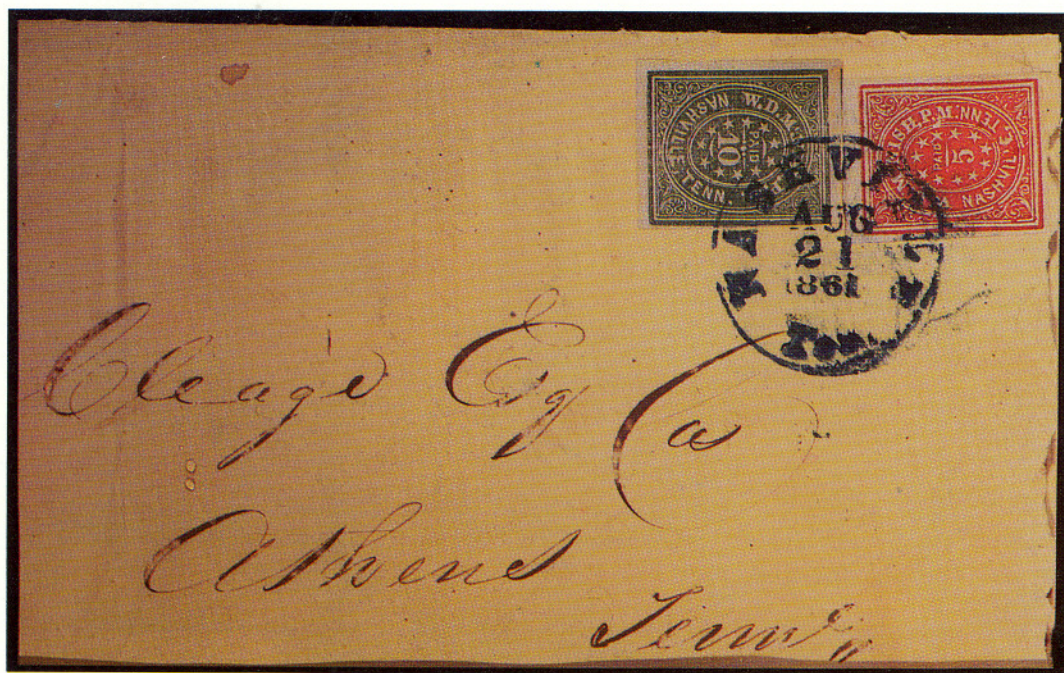 W.D. Mc
NASHVILLE TENN.
PAID
10
ISH, P.M.
NASHVILLE TENN.
PAID
5
NASHVILLE
AUG
21
1861
Ten.
Cleage Esq Co
Athens
Tenn